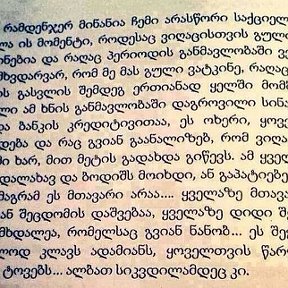 რამდენჯერ მინანია ჩემი არასწორი საქციელ
ის მომენტი, როდესაც ვიღაცისთვის გული
და რაღაც პერიოდის განმავლობაში
რომ მე მას გული ვატკინე, რაღაც
გასვლის შემდეგ ერთიანად ყელში მომ
ამ ხნის განმავლობაში დაგროვილი სინა
ბანკის კრედიტივითაა, ეს ოხერი, ყოვე
და რაც გვიან გაანალიზებ, რომ ვიღა
ხარ, მით მეტის გადახდა გიწევს. ამ ყველ
და ბოდიშს მოიხდი, ან გაპატიებე
მაგრამ ეს მთავარი არაა.... ყველაზე მთავა
ან შეცდომის დაშვებაა, ყველაზე დიდი შე
რომელსაც გვიან ნანობ... ეს შეც
კლავს ადამიანს, ყოველთვის წარ
ტოვებს... ალბათ სიკვდილამდეც კი.